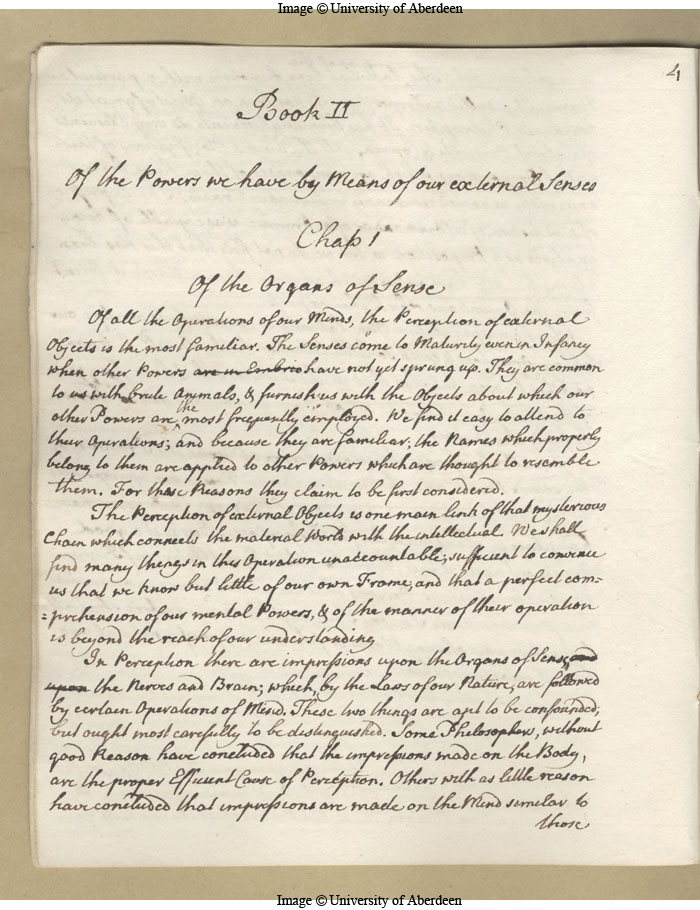 Image © University of Aberdeen
4
Book II
Of the Powers we have by Means of our external Senses
Chap 1
Of the Organs of Sense
Of all the Operations of our Minds, the Perception of external
Objects is the most familiar. The Senses come to Maturity even in Infancy
when other Powers are in Embrio have not yet sprung up. They are common
to us with brute Animals, & furnish us with the Objects about which our
other Powers are the most frequently employed. We find it easy to attend to
their Operations; and because they are familiar, the Names which properly
belong to them are applied to other Powers which are thought to resemble
them. For these Reasons they claim to be first considered.
The Perception of external Objects is one main link of that mysterious
Chain which connects the material World with the intellectual. We shall
find many things in this Operation unaccountable; sufficient to convince
us that we know but little of our own Frame, and that a perfect com=
=prehension of our mental Powers, & of the manner of their operation
is beyond the reach of our understanding
In Perception there are impressions upon the Organs of Sense, and
upon the Nerves and Brain; which, by the Laws of our Nature, are followed
by certain Operations of Mind. These two things are apt to be confounded;
but ought most carefully to be distinguished. Some Philosophers, without
good Reason have concluded that the impressions made on the Body,
are the proper Efficient Cause of Perception. Others with as little reason
have concluded that impressions are made on the Mind similar to
those
Image © University of Aberdeen